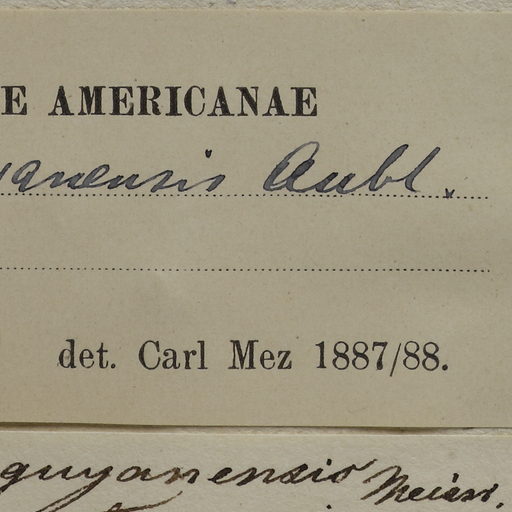 E AMERICANAE
anensis Aubl.
det. Carl Mez 1887/88.
guyanensis Meisn.